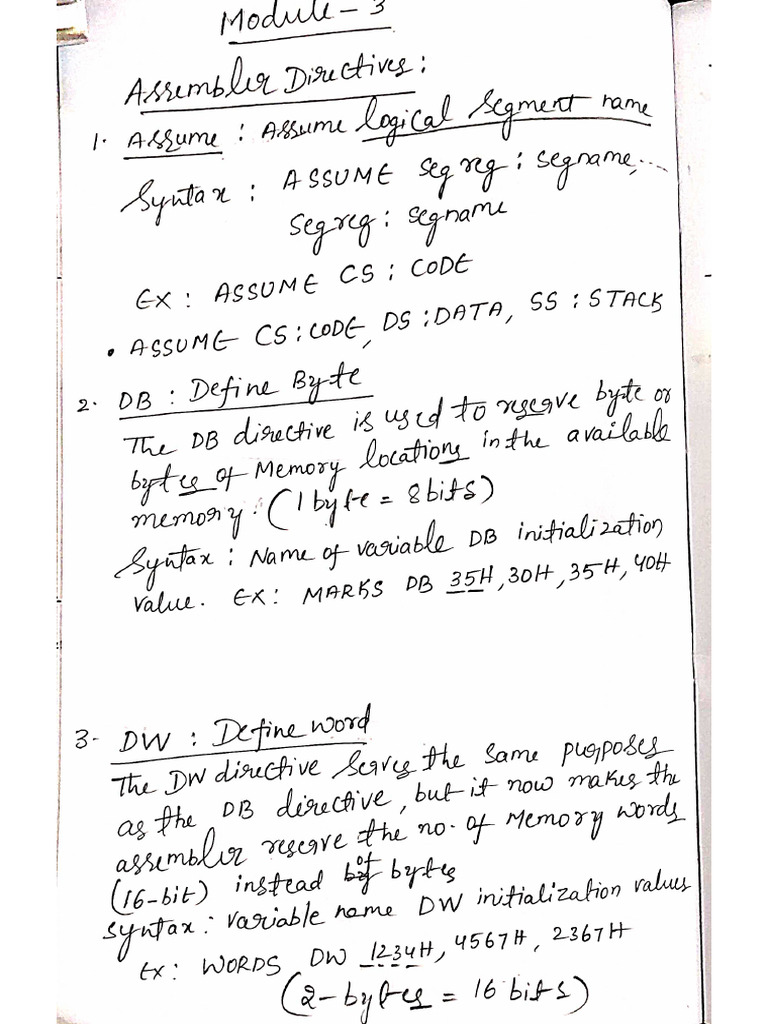 Module - 3
Assembler Directives:
1. Assume : Assume logical segment name
Syntax : ASSUME segreg : segname,...
segreg : segname
EX : ASSUME CS : CODE
• ASSUME CS:CODE, DS:DATA, SS:STACK
2. DB : Define Byte
The DB directive is used to reserve byte or
bytes of Memory locations in the available
memory. (1 byte = 8 bits)
Syntax : Name of variable DB initialization
value. EX: MARKS DB 35H, 30H, 35H, 40H
3- DW : Define word
The DW directive serves the same purposes
as the DB directive, but it now makes the
assembler reserve the no. of Memory words
(16-bit) instead of bytes
Syntax : variable name DW initialization values
Ex: WORDS DW 1234H, 4567H, 2367H
(2-bytes = 16 bits)